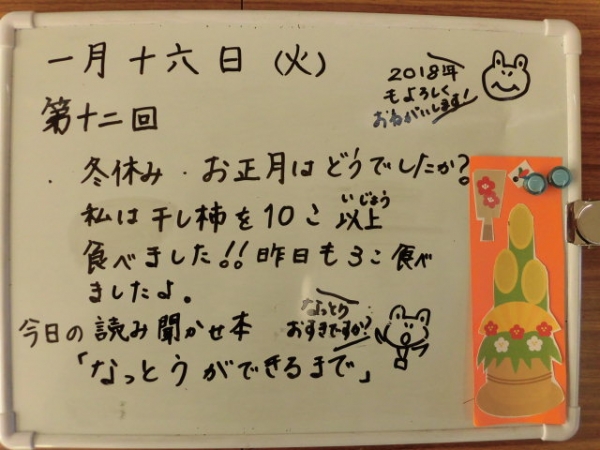 一月十六日（火）
2018年
もよろしく
おねがいします！
第十二回
・冬休み・お正月はどうでしたか？
いじょう
私は干し柿を10こ以上
食べました!!昨日も3こ食べ
ましたよ。
なっとう
おすきですか？
今日の読み聞かせ本
「なっとうができるまで」